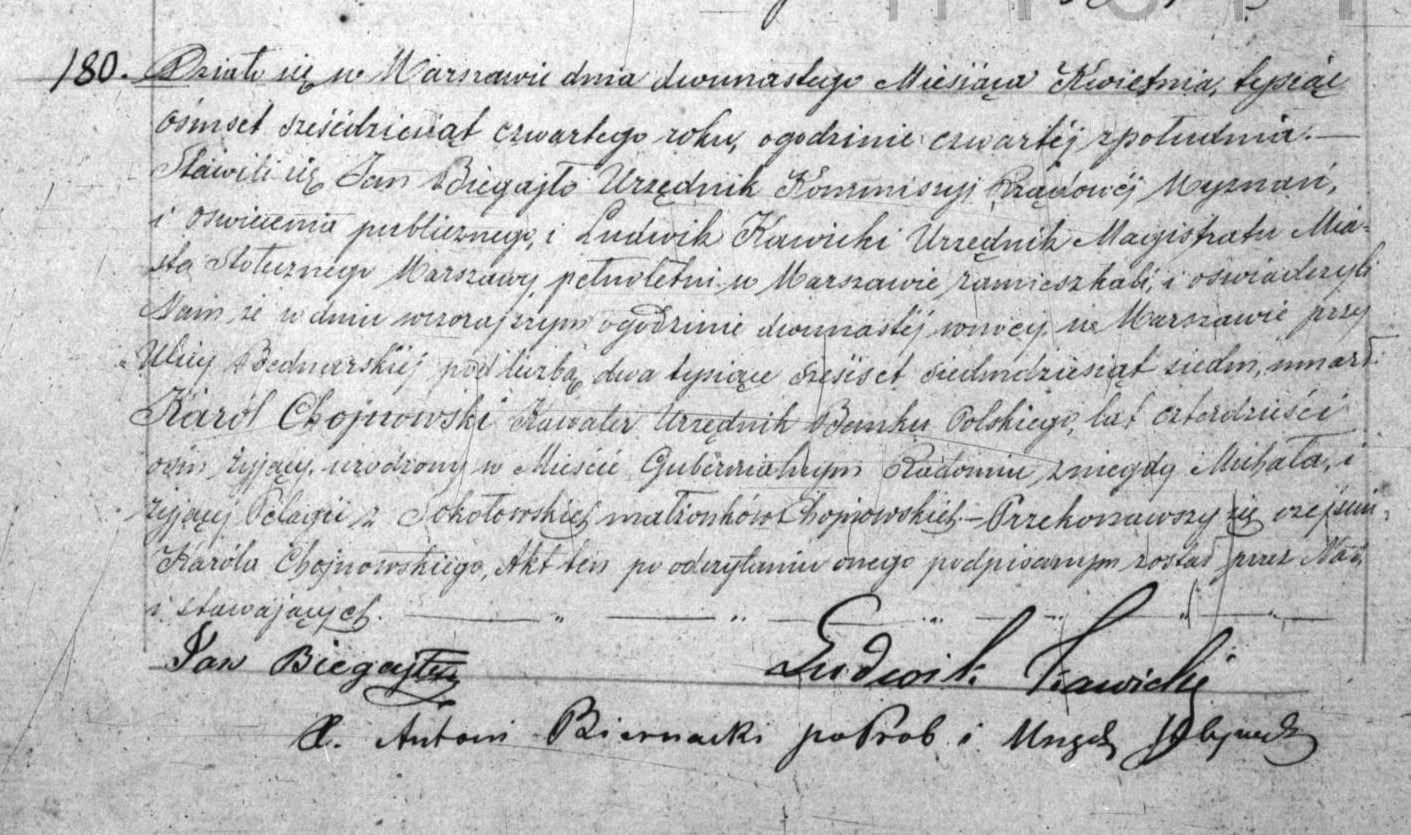 180. Działo się w Warszawie dnia dwunastego Miesiąca Kwietnia, tysiąc
ośmset sześćdziesiąt czwartego roku, ogodzinie czwartéj zpołudnia. —
Stawili się Jan Biegajło Urzędnik Kommissyi Rządowéj Wyznań,
i oswiecenia publicznego, i Ludwik Kawicki Urzędnik Magistratu Mia-
sta Stołecznego Warszawy, pełnoletni w Warszawie zamieszkali, i oswiadczyli
Nam że wdniu wczorajszym ogodzinie dwunastéj wnocy, w Warszawie przy
Ulicy Bednarskiéj pod liczbą dwa tysiące sześćset siedmdziesiąt siedm, umarł
Karól Chojnowski Kawaler Urzędnik Banku Polskiego, lat czterdzieści
ośm żyjący, urodzony w Mieście Gubernialnym Radomiu, zniegdy Michała, i
żyjącéj Pelagii z Sokołowskich małżonków Chojnowskich. — Przekonawszy się ozejściu
Karóla Chojnowskiego, Akt ten po odczytaniu onego podpisanym został przez Nas
i stawających. — " — " — " — " —
Jan Biegajło
Ludwik Kawicki
X. Antoni Biernacki poProb i